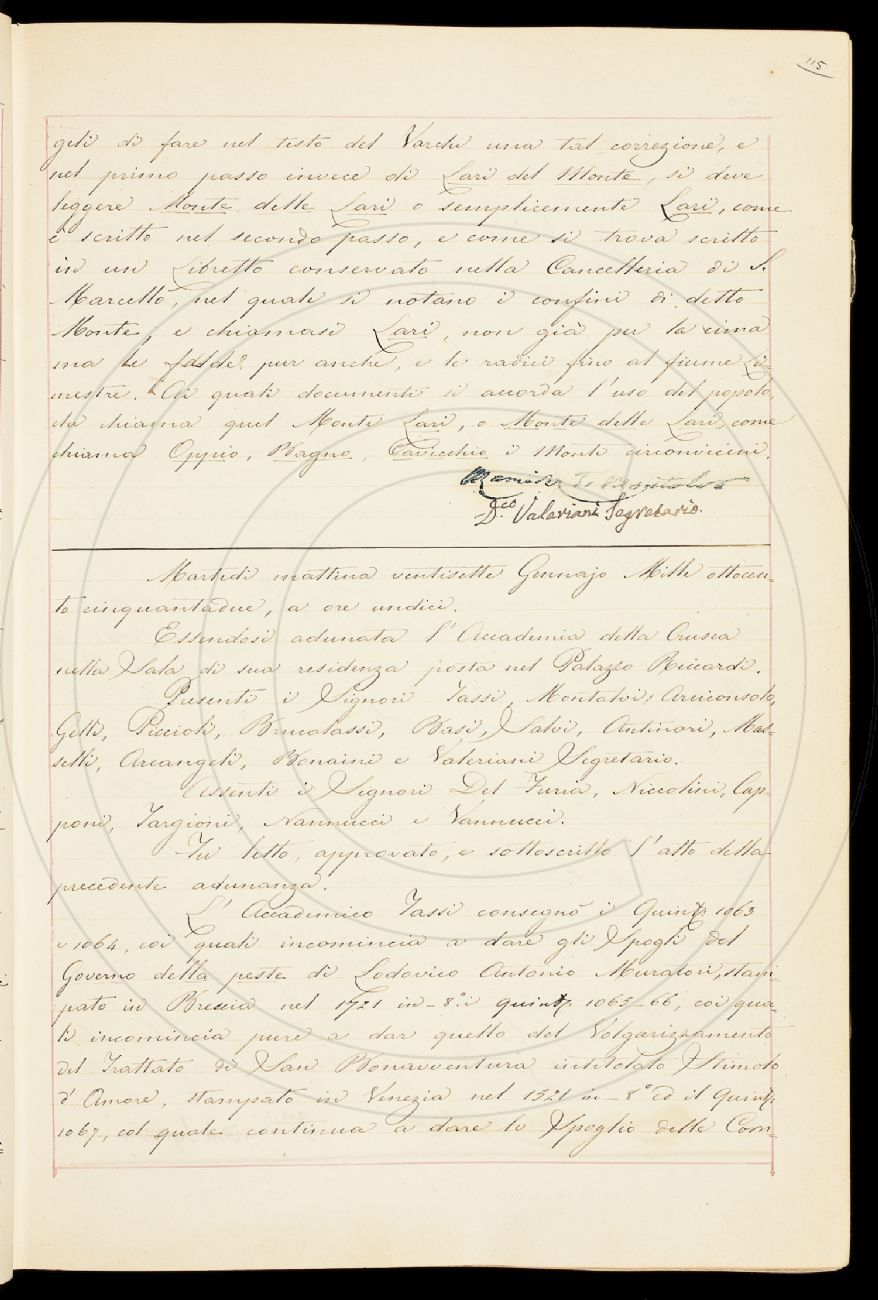 115
geli di fare nel testo del Varchi una tal correzione, e
nel primo passo invece di Lari del Monte, si deve
leggere Monte delle Lari o semplicemente Lari, come
è scritto nel secondo passo, e come si trova scritto
in un Libretto conservato nella Cancelleria di S.
Marcello, nel quale si notano i confini di detto
Monte, e chiamasi Lari, non già per la cima
ma le falde pur anche, e le radici fino al fiume Li-
mestre. Ai quali documenti si accorda l'uso del popolo,
che chiama quel Monte Lari, o Monte delle Lari, come
chiama Oppio, Bagno, Cavicchio i Monti circonvicini.
D.co Valeriani Segretario.
Martedì mattina ventisette Gennajo Mille ottocen-
to cinquantadue, a ore undici.
Essendosi adunata l'Accademia della Crusca
nella Sala di sua residenza posta nel Palazzo Riccardi.
Presenti i Signori Tassi, Montalvi Arciconsolo,
Gelli, Piccioli, Brucalassi, Basi, Salvi, Antinori, Mas-
selli, Arcangeli, Bonaini e Valeriani Segretario.
Assenti i Signori Del Furia, Niccolini, Cap-
poni, Targioni, Nannucci e Vannucci.
Fu letto, approvato, e sottoscritto l'atto della
precedente adunanza.
L'Accademico Tassi consegnò i Quint. 1063
e 1064, coi quali incomincia a dare gli Spogli del
Governo della peste di Lodovico Antonio Muratori, stam-
pato in Brescia nel 1721 in-8.° i quint. 1065-66, coi qua-
li incomincia pure a dar quello del Volgarizzamento
del Trattato di San Bonavventura intitolato Stimolo
d'Amore, stampato in Venezia nel 1521 in-8° ed il Quint.
1067, col quale continua a dare lo Spoglio delle Com-